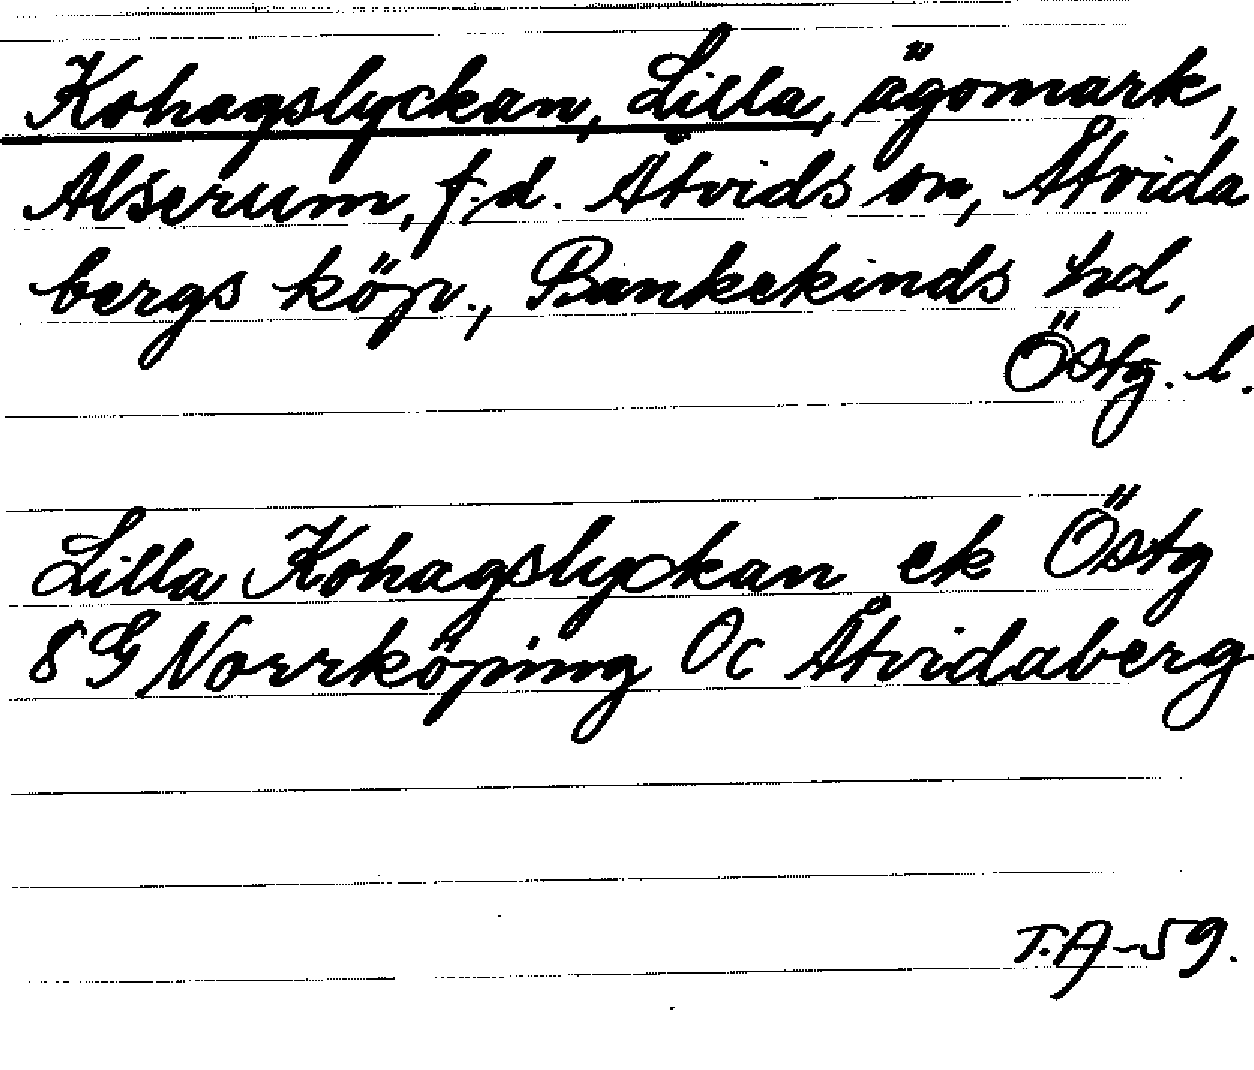 Kohagslyckan, Lilla, ägomark,
Alserum, f.d. Åtvids sn, Åtvida
bergs köp., Bankekinds hd,
Östg. l.
Lilla Kohagslyckan ek Östg
8 G Norrköping Oc Åtvidaberg
T.A-59.